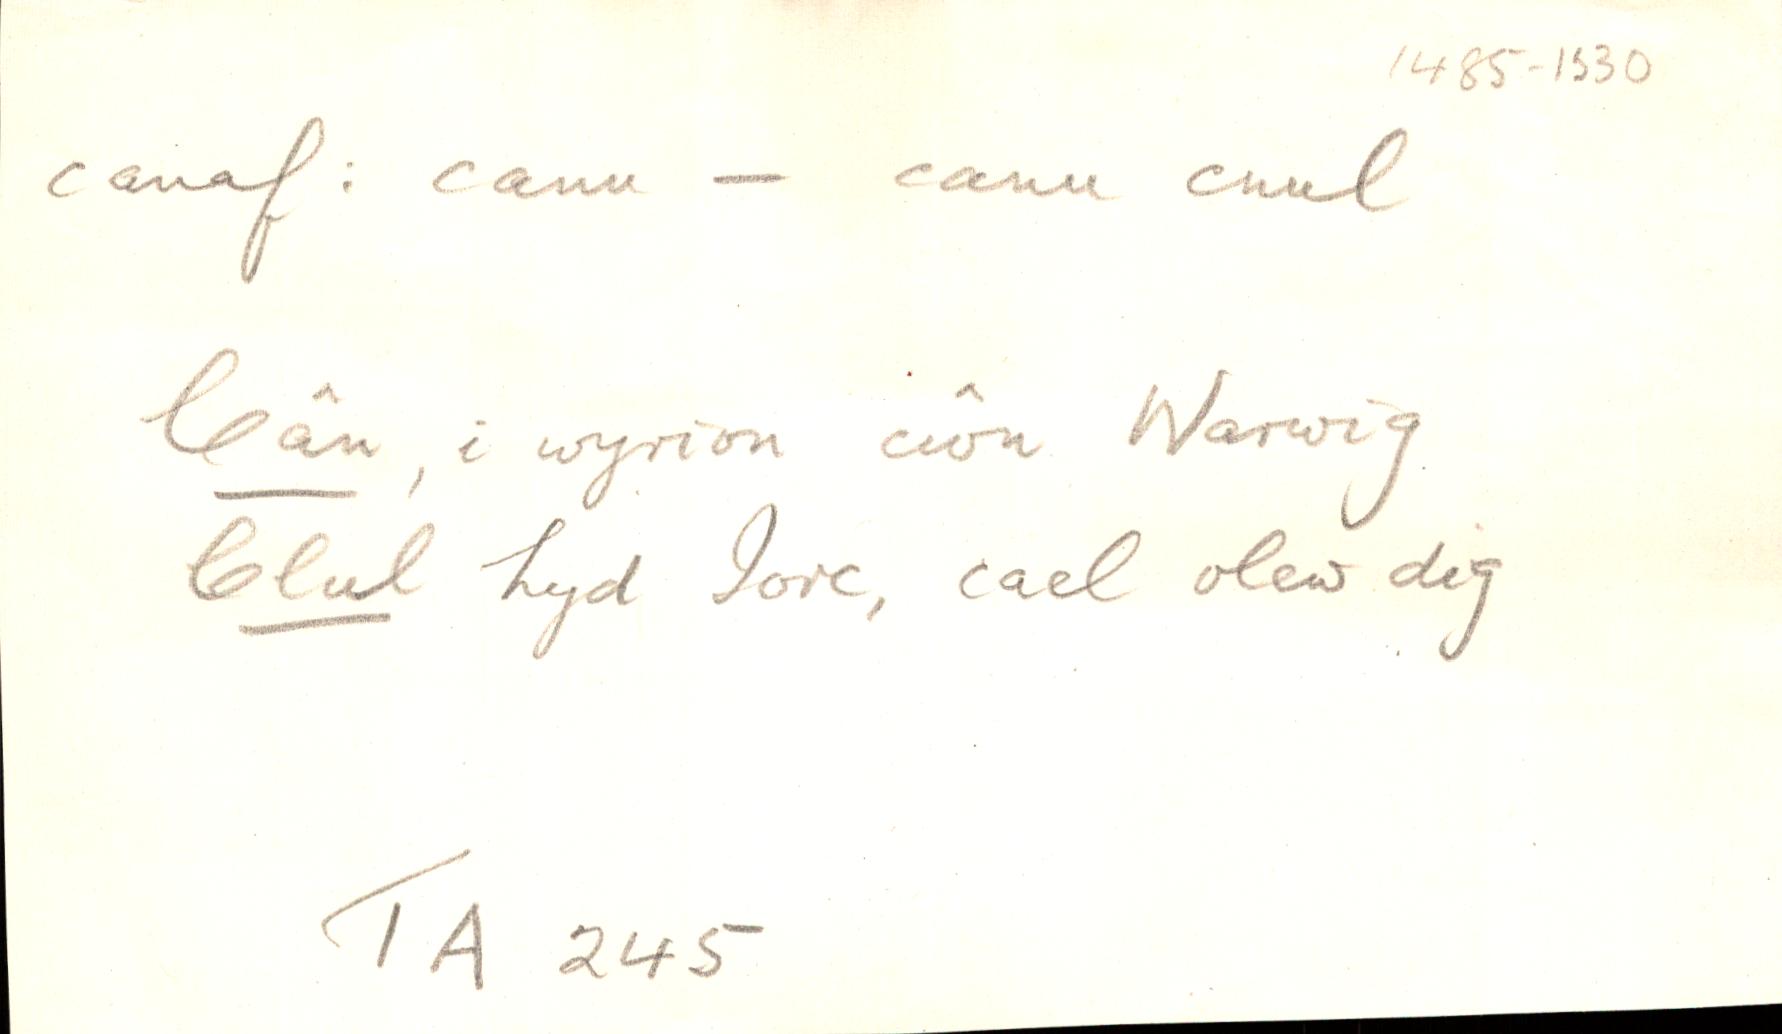 1485-1530
canaf: canu – canu cnul
Cân, i wyrion ciôn Warwig
Clul hyd Iorc, cael olew dig
TA 245